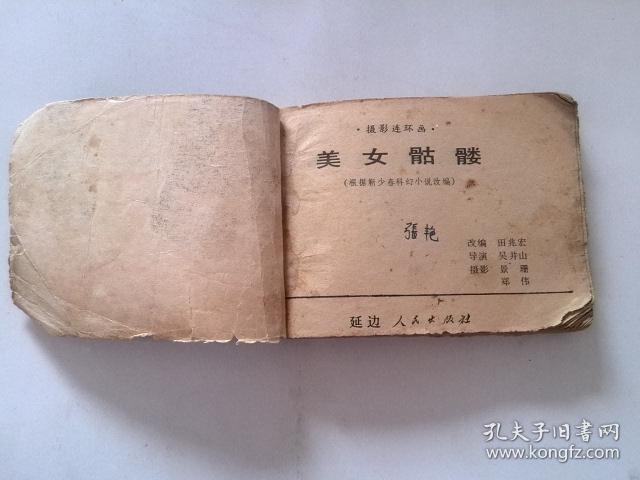 ·摄影连环画·
美女骷髅
(根据靳少春科幻小说改编)
張艳
改编 田兆宏
导演 吴井山
摄影 景珊
郑伟
延边人民出版社
孔夫子旧书网
www.kongfz.com